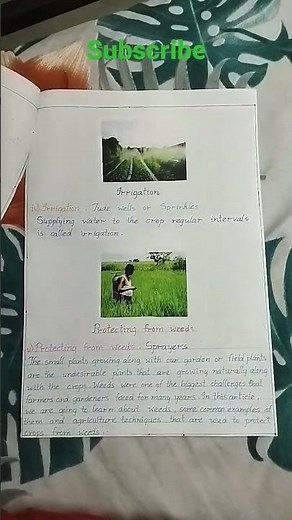 Subscribe
Irrigation
iv) Irrigation: Tude wells or Sprinkles
Supplying water to the crop regular intervals
is called irrigation.
Protecting from weeds.
v) Protecting from weeds: Sprayers
The small plants growing along with our garden or field plants
are the undesirable plants that are growing naturally along
with the crops. Weeds were one of the biggest challenges that
farmers and gardeners faced for many years. In this article,
we are going to learn about weeds, some common examples of
them and agriculture techniques that are used to protect
crops from weeds.